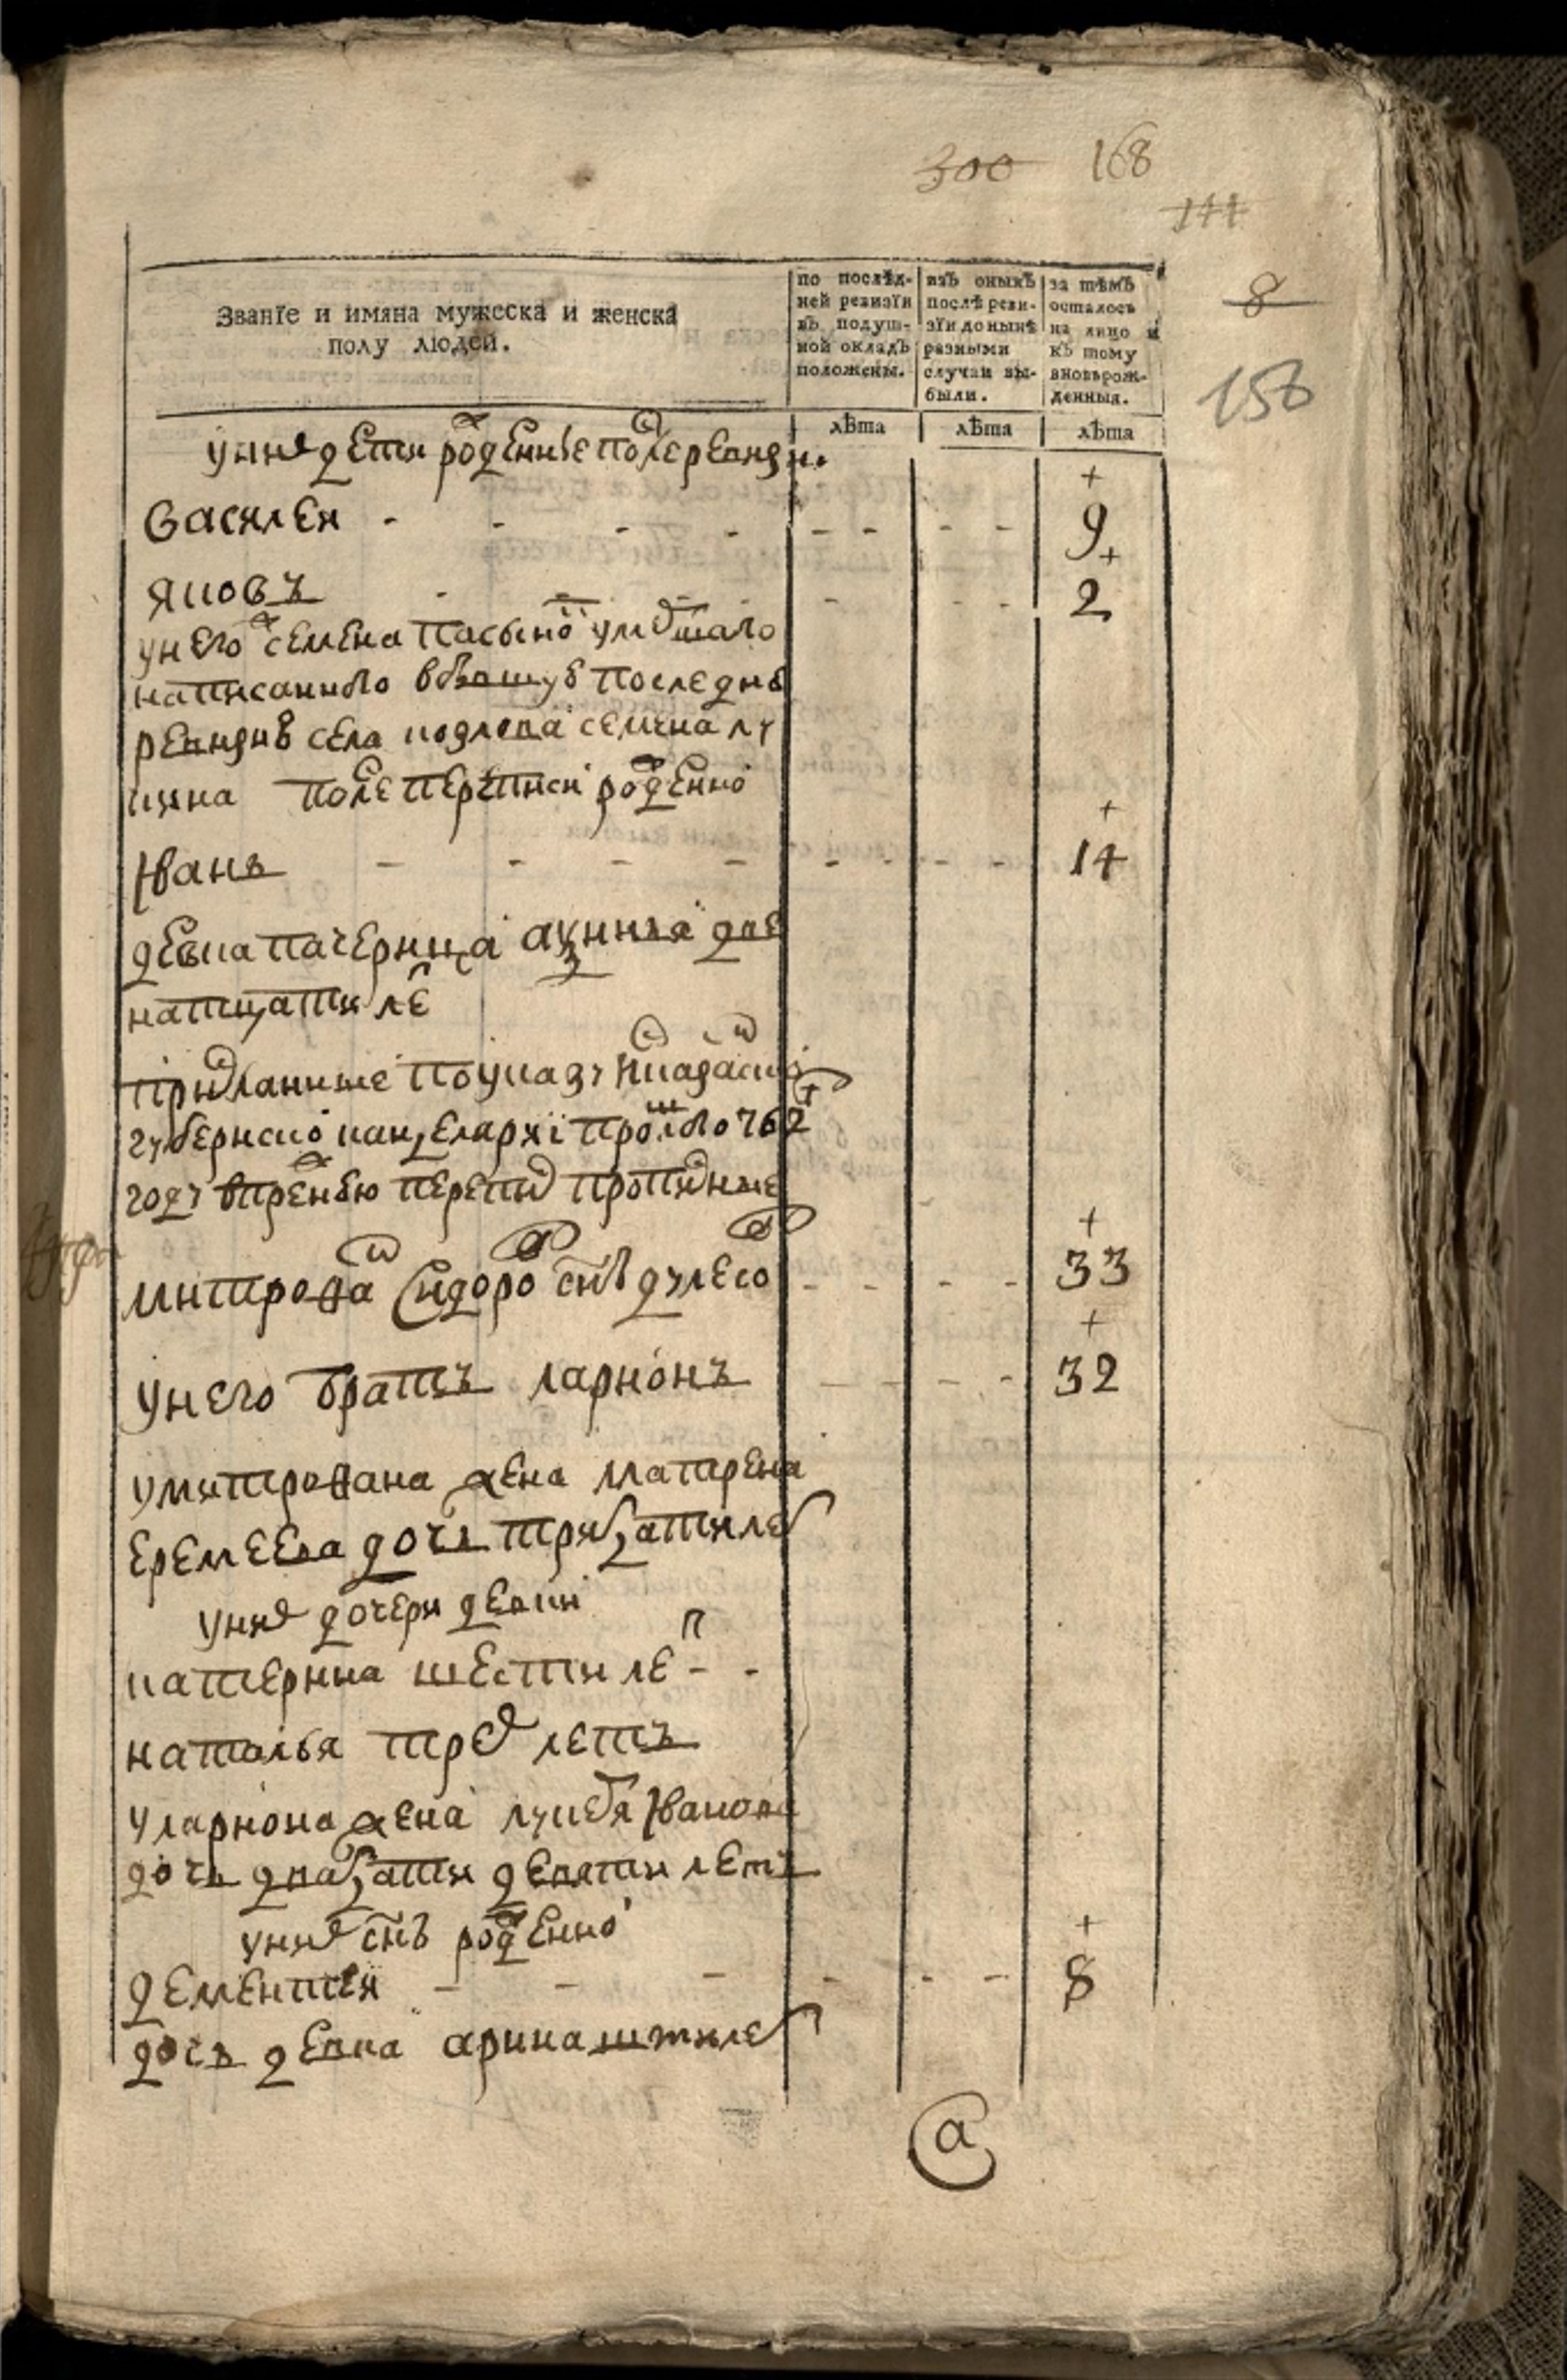 300 168
144
8
158
Званїе и имяна мужеска и женска
полу людей.
по послѣд-
ней ревизїи
въ подуш-
ной окладъ
положены.
изъ оныхъ
послѣ реви-
зїи до нынѣ
разными
случаи вы-
были.
за тѣмъ
осталось
на лицо и
къ тому
вновьрож-
денныя.
лѣта лѣта лѣта
у них дети рожденные после ревизи.
василеи - - - - - - - - 9
яковъ - - - - - 2
у него семена пасынок
написанного в бывшую последнею
ревизию села семена лу
кина после переписи рожденной
Иванъ - - - - - - - - 14
девка пачерица две
натцати лет
присланные по указу казанской
губернской канцелярии прошлого 762
году в прежнюю перепис прописные
митрофан Сидоров снъ - - - - 33
у него братъ ларионъ - - - - 32
у митрофана жена матрена
еремеева дочь тритцати лет
у них дочери девки
катерина шести лет - -
наталья трех летъ
у лариона жена лукеря Иванова
дочь двацати девяти летъ
у них снъ рожденной
дементеи - - - - - - 8
дочь девка арина шти лет
а